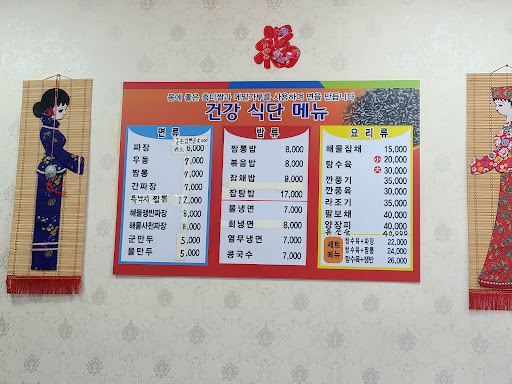 福
몸에 좋은 흑미쌀과 메밀가루를 사용하여 면을 만듭니다
건강 식단 메뉴
면 류
짜장 6,000
우동 7,000
짬뽕 7,000
간짜장 7,000
특낙지 짬뽕 12,000
해물쟁반짜장 8,000
해물사천짜장 8,000
군만두 5,000
물만두 5,000
밥 류
짬뽕밥 8,000
볶음밥 8,000
잡채밥 9,000
잡탕밥 17,000
물냉면 7,000
회냉면 8,000
열무냉면 7,000
콩국수 7,000
요 리 류
해물잡채 15,000
탕수육 小 20,000
大 30,000
깐풍기 35,000
깐풍육 30,000
라조기 35,000
팔보채 40,000
양장피 40,000
세트메뉴
탕수육+짜장 22,000
탕수육+짬뽕 24,000
탕수육+쟁반 26,000